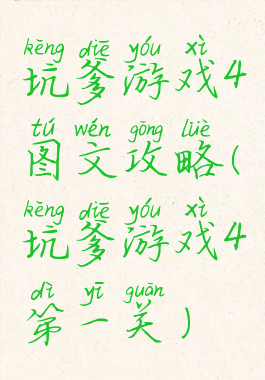 kēng diē yóu xì
坑爹游戏4
tú wén gōng lüè
图文攻略(
kēng diē yóu xì
坑爹游戏4
dì yī guān
第一关)